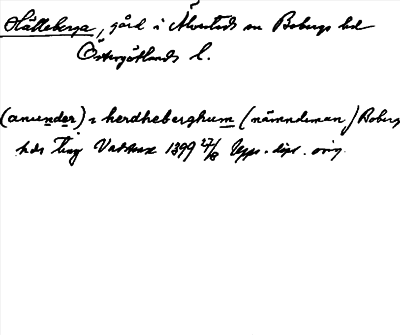 Hälleberga, gård i Älvestads sn Bobergs hd
Östergötlands l.
(anunder) i herdheberghum (nämndeman) Boberg
hds ting Vadstena 1399 27/8 Upps. dipl. orig.